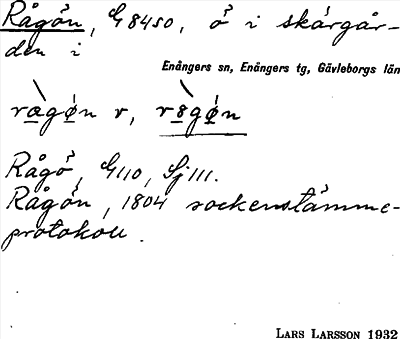 Rågön, G8450, ö i skärgår-
den i
Enångers sn, Enångers tg, Gävleborgs län
rægøn r, r8gøn
Rågö, G110, Sj 111.
Rågön, 1804 sockenstämme-
protokoll.
LARS LARSSON 1932